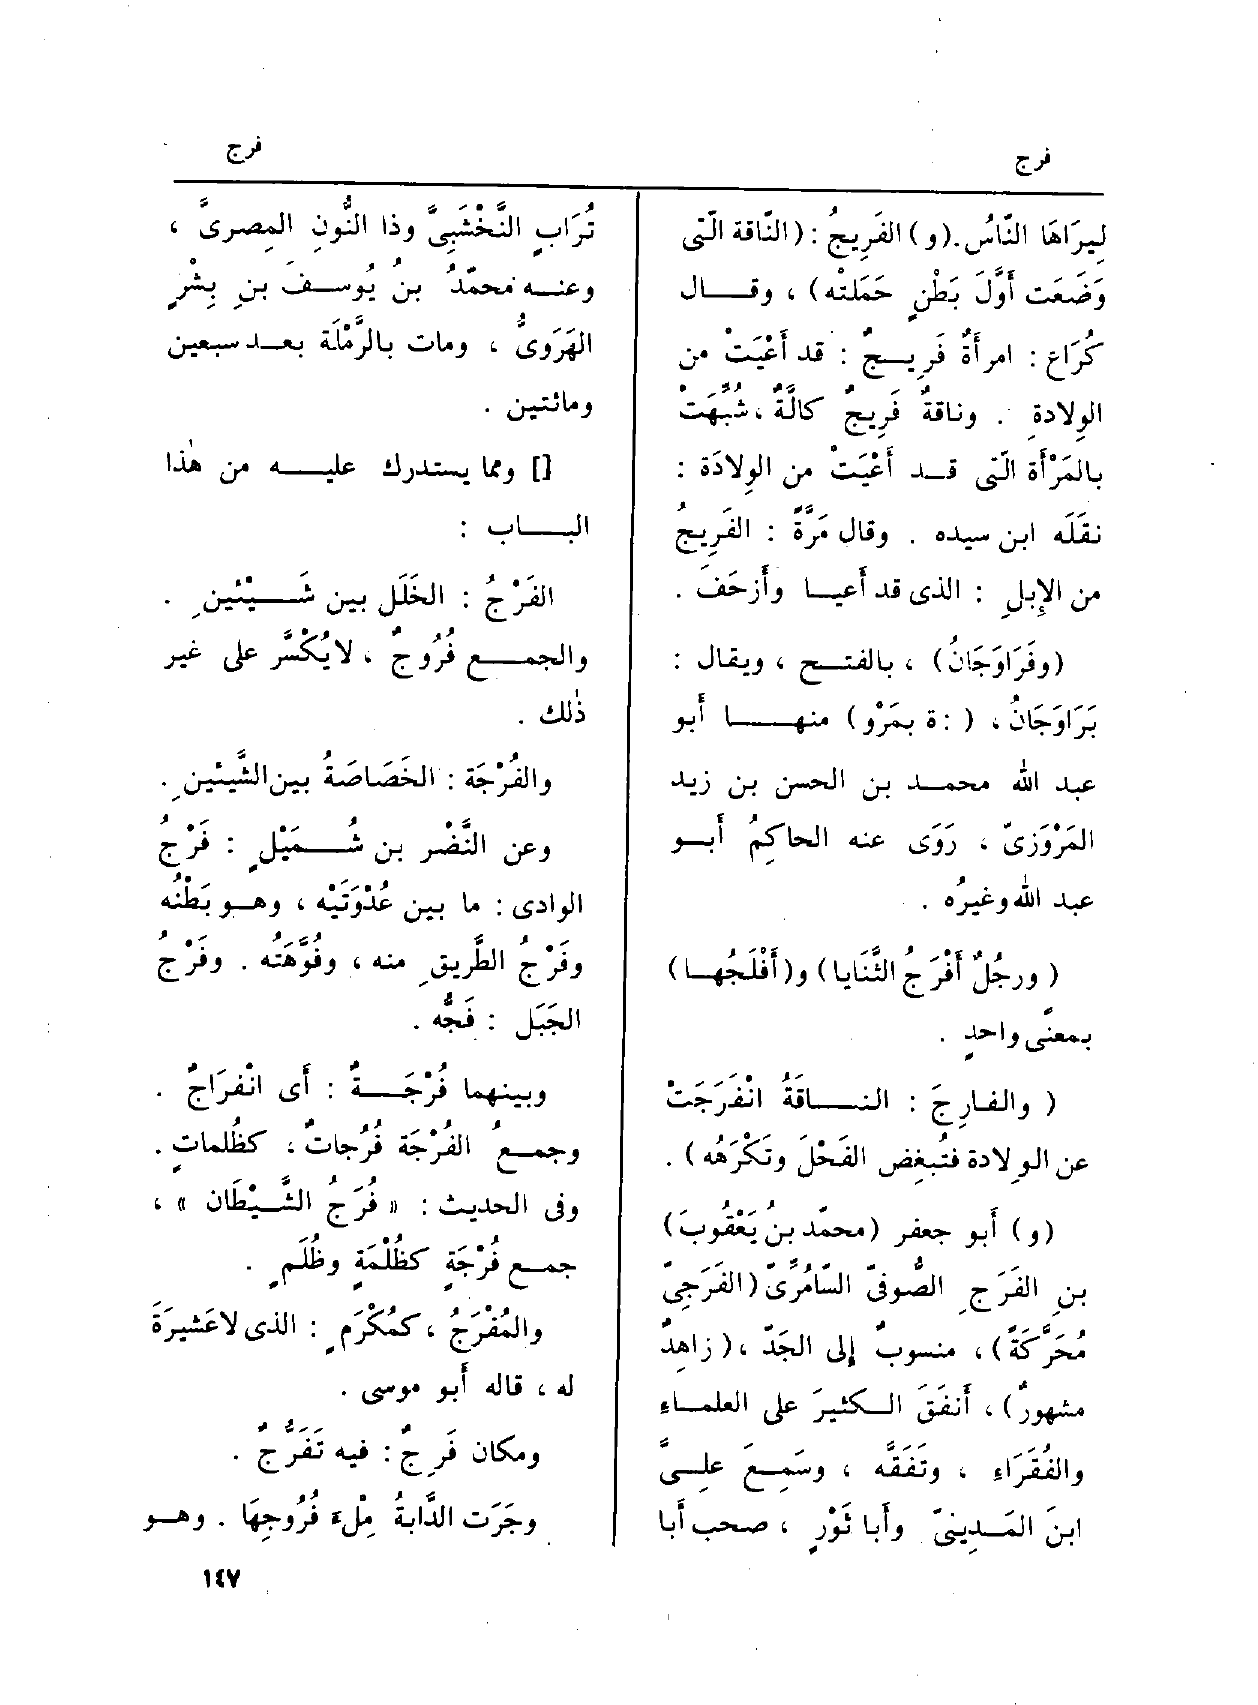 فرج
فرج
لِيرَاهَا النّاسُ. (و) الفَرِيجُ : (النّاقة الّتى
وَضَعَت أَوَّلَ بَطْنٍ حَمَلتْه) ، وقــال
كُرَاع : امرأَةٌ فَرِيــجٌ : قد أَعْيَتْ من
الوِلادةِ . وناقةٌ فَرِيجٌ كالَّةٌ ، شُبِّهَتْ
بالمَرْأَة الّتى قــد أَعْيَتْ من الوِلادَة :
نقَلَه ابن سيده . وقال مَرَّةً : الفَرِيجُ
من الإِبلِ : الذى قد أَعيــا وأَزحَفَ .
(وفَرَاوَجَانُ) ، بالفتــح ، ويقال :
بَرَاوَجَانُ ، ( : ة بمَرْو) منهــا أَبو
عبد الله محمــد بن الحسن بن زيد
المَرْوَزىّ ، رَوَى عنه الحاكِمُ أَبــو
عبد الله وغيرُه .
( ورجُلٌ أَفْرَجُ الثَّنَايا) و(أَفْلَجُهــا)
بمعنًى واحدٍ .
( والفـارِجَ : النــاقَةُ انْفَرَجَتْ
عن الوِلادة فتُبغِض الفَحْلَ وتَكْرَهُه) .
(و) أَبو جعفر (محمّد بنُ يَعْقُوبَ)
بنِ الفَرَجِ الصُّوفىّ السّامُرّىّ (الفَرَجىّ
مُحَرَّكَةً) ، منسوبٌ إِلى الجَدّ ، (زاهِدٌ
مشهورٌ) ، أَنفَقَ الــكثيرَ على العلمــاءِ
والفُقَرَاءِ ، وتَفَقَّه ، وسَمِــعَ علِــىَّ
ابنَ المَــدِينىّ وأَبا ثَوْرٍ ، صحب أَبا
تُرَابٍ النَّخْشَبِىَّ وذا النُّونِ المِصرىَّ ،
وعنــه محمّدُ بنُ يُوســفَ بنِ بِشْرٍ
الهَرَوِىُّ ، ومات بالرَّمْلَة بعــد سبعين
ومائتين .
[] ومما يستدرك عليــه من هٰذا
البــاب :
الفَرْجُ : الخَلَل بين شَــيْئين .
والجمــع فُرُوجٌ ، لا يُكْسَّر على غير
ذٰلك .
والفُرْجَة : الخَصَاصَةُ بين الشَّيئينِ .
وعن النَّضْر بن شُــمَيْلٍ : فَرْجُ
الوادى : ما بين عُدْوَتَيْه ، وهــو بَطْنُه
وفَرْجُ الطَّريقِ منه ، وفُوَّهَتُه . وفَرْجُ
الجَبَل : فَجُّه .
وبينهما فُرْجَــةٌ : أَى انْفرَاجٌ .
وجمــعُ الفُرْجَة فُرُجاتٌ ، كظُلماتٍ .
وفى الحديث : « فُرَجُ الشَّــيْطَان » ،
جمــع فُرْجَةٍ كظُلْمَةٍ وظُلَمٍ .
والمُفْرَجُ ، كمُكْرَمٍ : الذى لا عَشيرَةَ
له ، قاله أَبو موسى .
ومكان فَرِجٌ : فيه تَفَرُّجٌ .
وجَرَت الدَّابةُ مِلْءَ فُرُوجِهَا . وهــو
١٤٧